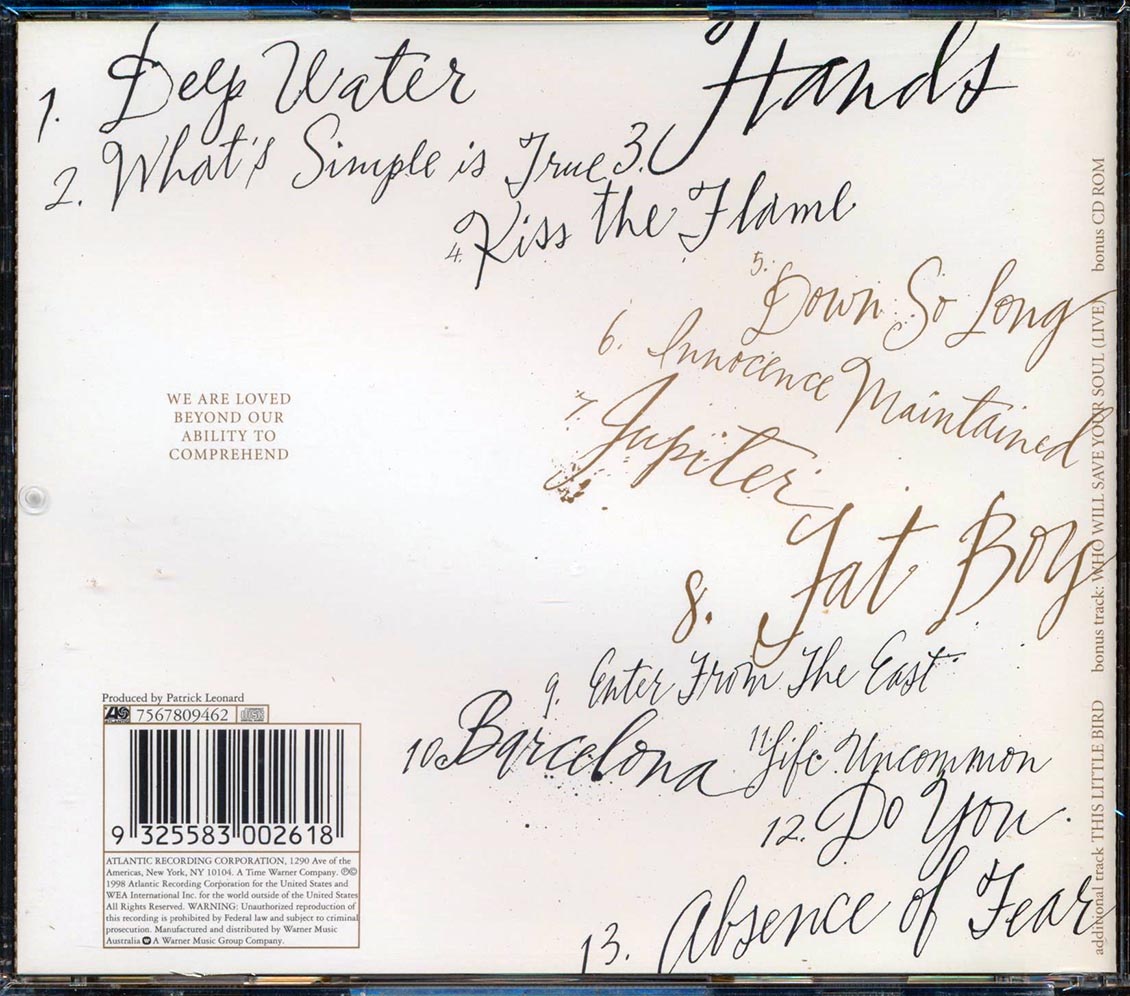 1. Deep Water
2. What's Simple is True
3. Hands
4. Kiss the Flame
5. Down So Long
6. Innocence Maintained
7. Jupiter
8. Fat Boy
9. Enter From The East
10. Barcelona
11. Life Uncommon
12. Do You
13. Absence of Fear
WE ARE LOVED
BEYOND OUR
ABILITY TO
COMPREHEND
additional track THIS LITTLE BIRD bonus track: WHO WILL SAVE YOUR SOUL (LIVE) bonus CD ROM
Produced by Patrick Leonard
7567809462
9 325583 002618
ATLANTIC RECORDING CORPORATION, 1290 Ave of the
Americas, New York, NY 10104. A Time Warner Company. ℗©
1998 Atlantic Recording Corporation for the United States and
WEA International Inc. for the world outside of the United States
All Rights Reserved. WARNING: Unauthorized reproduction of
this recording is prohibited by Federal law and subject to criminal
prosecution. Manufactured and distributed by Warner Music
Australia A Warner Music Group Company.